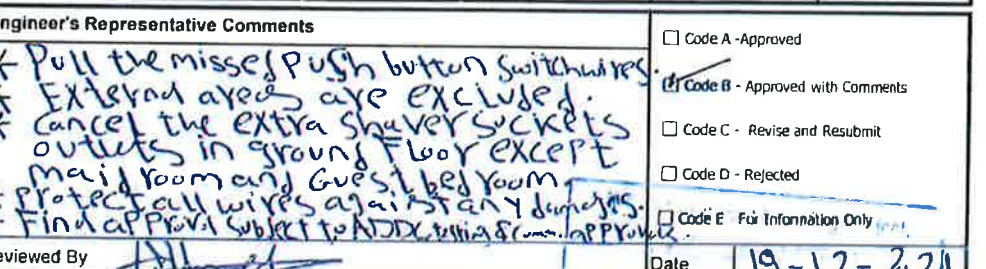 ngineer's Representative Comments
* Pull the missed push button switch wires.
* External areas are excluded.
* Cancel the extra shaver sockets
outlets in ground floor except
maid room and Guest bedroom
- protect all wires against any damages.
- Find approval subject to ADDC testing & comm. approval.
eviewed By
Code A -Approved
Code B - Approved with Comments
Code C - Revise and Resubmit
Code D - Rejected
Code E For Information Only
Date